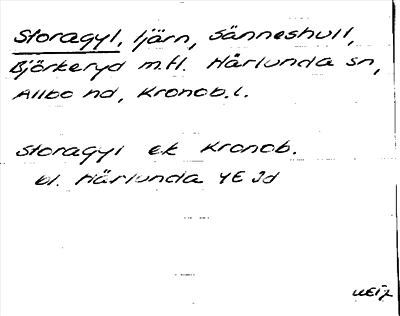 Storagyl, tjärn, Sänneshult,
Björkeryd m.fl. Härlunda sn,
Allbo hd, Kronob. l.
Storagyl ek Kronob.
bl. Härlunda 4E Jd